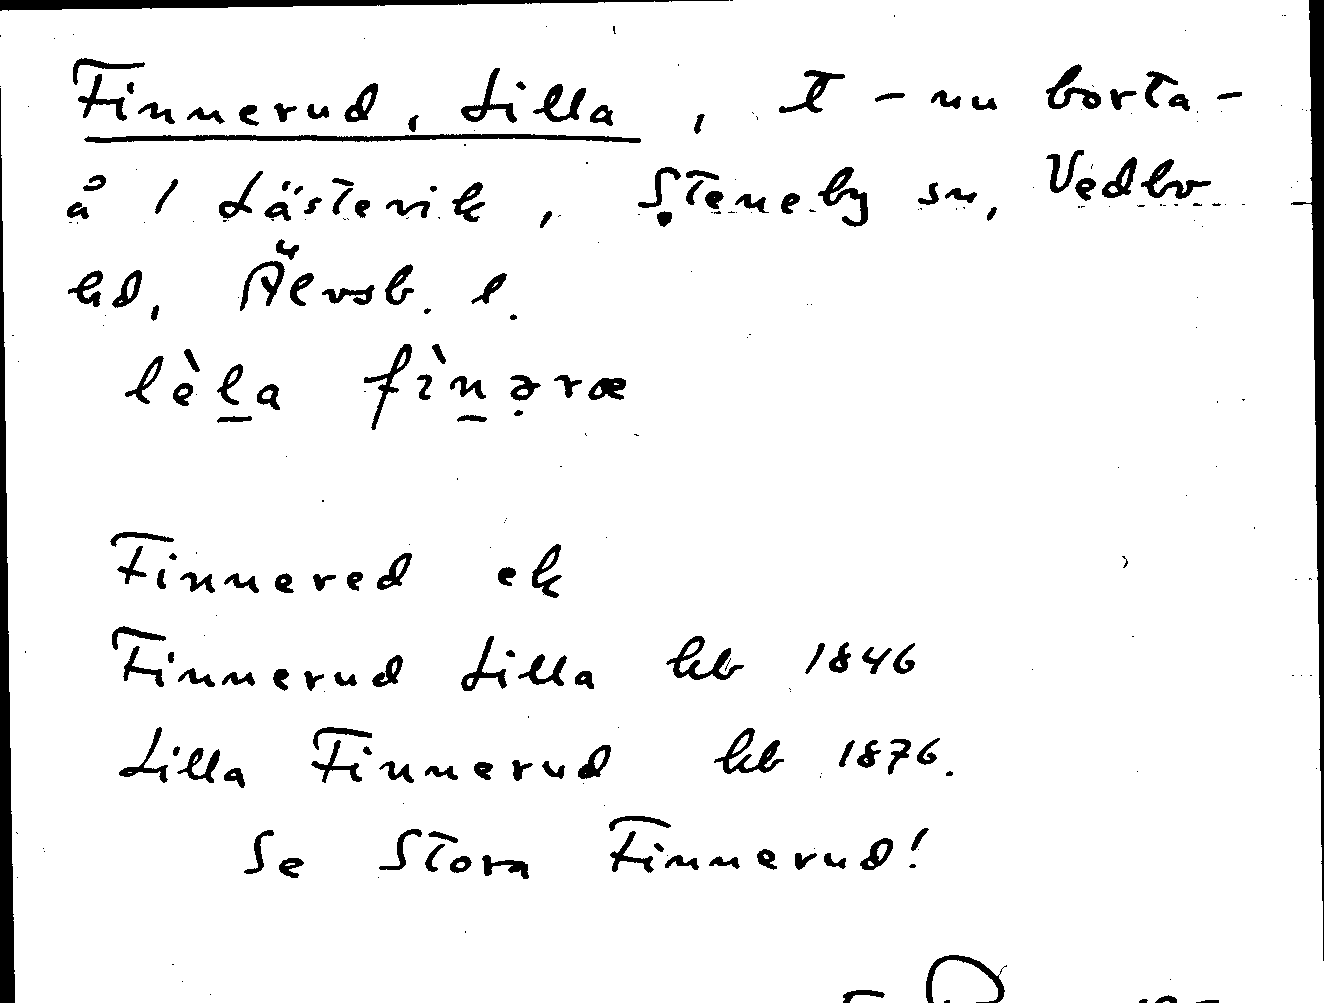 Finnerud, Lilla, t - nu borta -
å 1 Lästevik, Steneby sn, Vedbo
hd, Älvsb. l.
lèl̠a fìn̠ə̣ræ
Finnered ek
Finnerud Lilla hb 1846
Lilla Finnerud hb 1876.
Se Stora Finnerud!